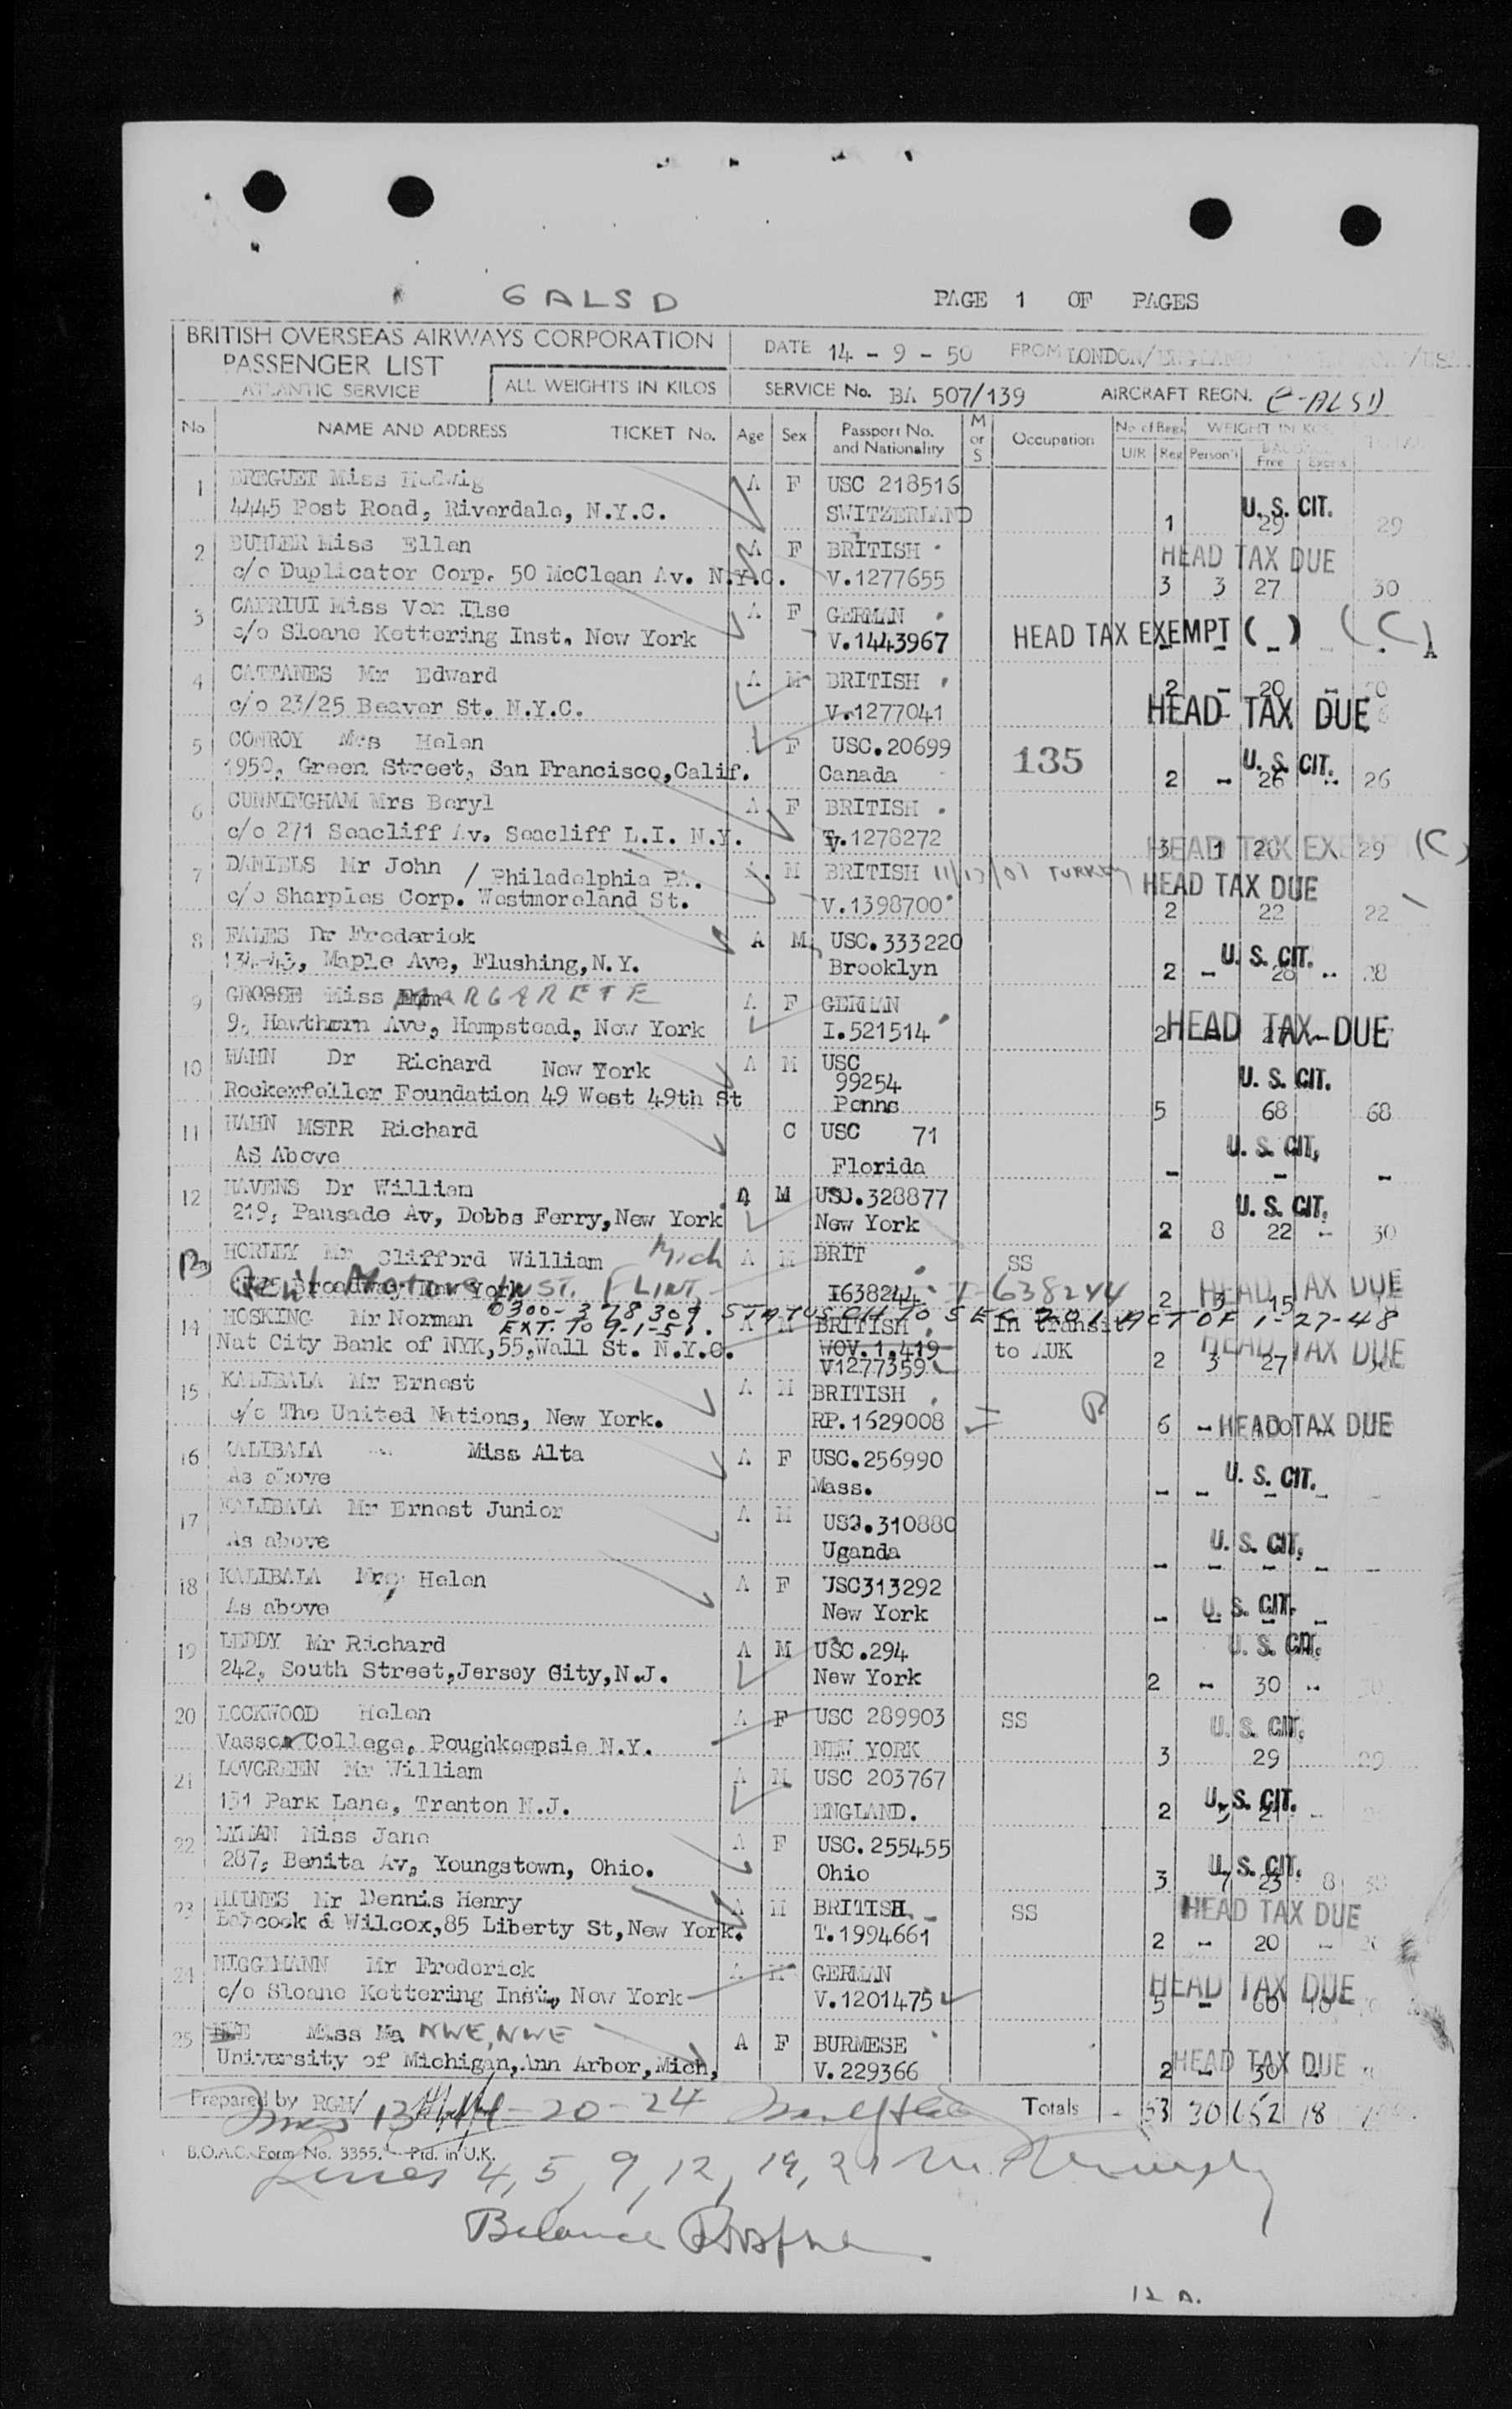 GALSD
PAGE 1 OF PAGES
BRITISH OVERSEAS AIRWAYS CORPORATION
PASSENGER LIST
ATLANTIC SERVICE
ALL WEIGHTS IN KILOS
DATE 14 - 9 - 50 FROM LONDON/ENGLAND
SERVICE No. BA 507/139 AIRCRAFT REGN. G-ALSD
No NAME AND ADDRESS TICKET No. Age Sex Passport No. and Nationality M or S Occupation No of Bags U/R Reg WEIGHT IN KGS Person'l Free Excess
1 BREGUET Miss Hedwig A F USC 218516 U. S. CIT.
4445 Post Road, Riverdale, N.Y.C. SWITZERLAND 1 29 29
2 BUHLER Miss Ellen A F BRITISH HEAD TAX DUE
c/o Duplicator Corp. 50 McClean Av. N.Y.C. V.1277655 3 3 27 30
3 CATRIUI Miss Von Ilse A F GERMAN
c/o Sloane Kettering Inst. New York V.1443967 HEAD TAX EXEMPT ( - ) (C)
4 CATTANES Mr Edward A M BRITISH 2 - 20 -
c/o 23/25 Beaver St. N.Y.C. V.1277041 HEAD TAX DUE
5 CONROY Mrs Helen F USC.20699 135 U. S. CIT.
1950, Green Street, San Francisco, Calif. Canada 2 - 26 -- 26
6 CUNNINGHAM Mrs Beryl A F BRITISH
c/o 271 Seacliff Av. Seacliff L.I. N.Y. V.1278272 HEAD TAX EXEMPT (C) 3 1 28 29
7 DANIELS Mr John / Philadelphia PA. A. M BRITISH 11/13/07 TURKEY HEAD TAX DUE
c/o Sharples Corp. Westmoreland St. V.1398700 2 22 22
8 FALES Dr Frederick A M USC.333220 U. S. CIT.
134-43, Maple Ave, Flushing, N.Y. Brooklyn 2 - 28 -- 28
9 GROSSE Miss MARGARETE A F GERMAN
9, Hawthorn Ave, Hampstead, New York I.521514 HEAD TAX DUE 2
10 HAHN Dr Richard New York A M USC 99254 U. S. CIT.
Rockerfeller Foundation 49 West 49th St Penns 5 68 68
11 HAHN MSTR Richard C USC 71 U. S. CIT.
AS Above Florida - - -
12 HAVENS Dr William A M USC.328877 U. S. CIT.
219, Pansade Av, Dobbs Ferry, New York New York 2 8 22 -- 30
HORLEY Mr Clifford William Mich A M BRIT SS
Gen'l Motors INST. FLINT I638244 I-638244 HEAD TAX DUE 2 3 15
0300-378309 STATUS CH TO SEC 201 ACT OF 1-27-48
EXT. TO 9-1-51.
14 HOSKING Mr Norman A M BRITISH In transit
Nat City Bank of NYK, 55, Wall St. N.Y.C. WOV.1.419 V1277359 to AUK HEAD TAX DUE 2 3 27
15 KALIBALA Mr Ernest A M BRITISH
c/o The United Nations, New York. RP.1629008 6 - HEAD TAX DUE
16 KALIBALA Miss Alta A F USC.256990 U. S. CIT.
As above Mass. - - - -
17 KALIBALA Mr Ernest Junior A M USC.310880 U. S. CIT.
As above Uganda - - - - -
18 KALIBALA Mrs Helen A F USC313292 U. S. CIT.
As above New York - - - -
19 LEDDY Mr Richard A M USC.294 U. S. CIT.
242, South Street, Jersey City, N.J. New York 2 -- 30 --
20 LOCKWOOD Helen A F USC 289903 SS U. S. CIT.
Vassar College, Poughkeepsie N.Y. NEW YORK 3 29 29
21 LOVGREEN Mr William A M USC 203767 U. S. CIT.
131 Park Lane, Trenton N.J. ENGLAND. 2
22 LYMAN Miss Jane A F USC.255455 U. S. CIT.
287, Benita Av, Youngstown, Ohio. Ohio 3 7 23 8
23 MILNES Mr Dennis Henry A M BRITISH SS HEAD TAX DUE
Babcock & Wilcox, 85 Liberty St, New York. T.1994661 2 - 20 -
24 NIGGEMANN Mr Frederick A M GERMAN HEAD TAX DUE
c/o Sloane Kettering Inst., New York V.1201475 5 - 60
25 Miss Ma NWE, NWE A F BURMESE HEAD TAX DUE
University of Michigan, Ann Arbor, Mich, V.229366 2 - 30 -
Prepared by RGH/ Totals 53 30 652 18
Lines 13-14-20-24
B.O.A.C. Form No. 3355. Ptd. in U.K.
Lines 4, 5, 9, 12, 19, 21
Balance
12 A.